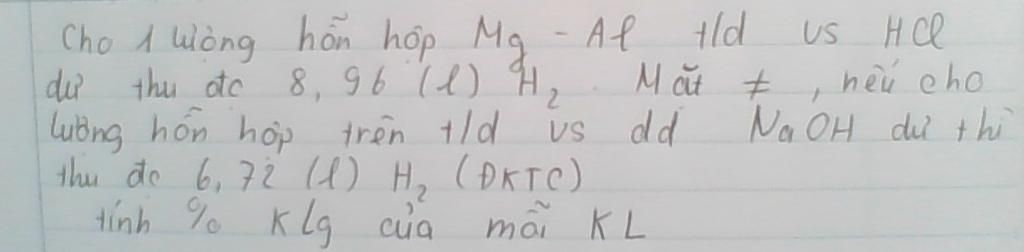 Cho 1 lượng hỗn hợp Mg - Al t/d vs HCl
dư thu đc 8,96 (l) H₂. Mặt ≠, nếu cho
lượng hỗn hợp trên t/d vs dd NaOH dư thì
thu đc 6,72 (l) H₂ (ĐKTC)
tính % KLg của mỗi KL